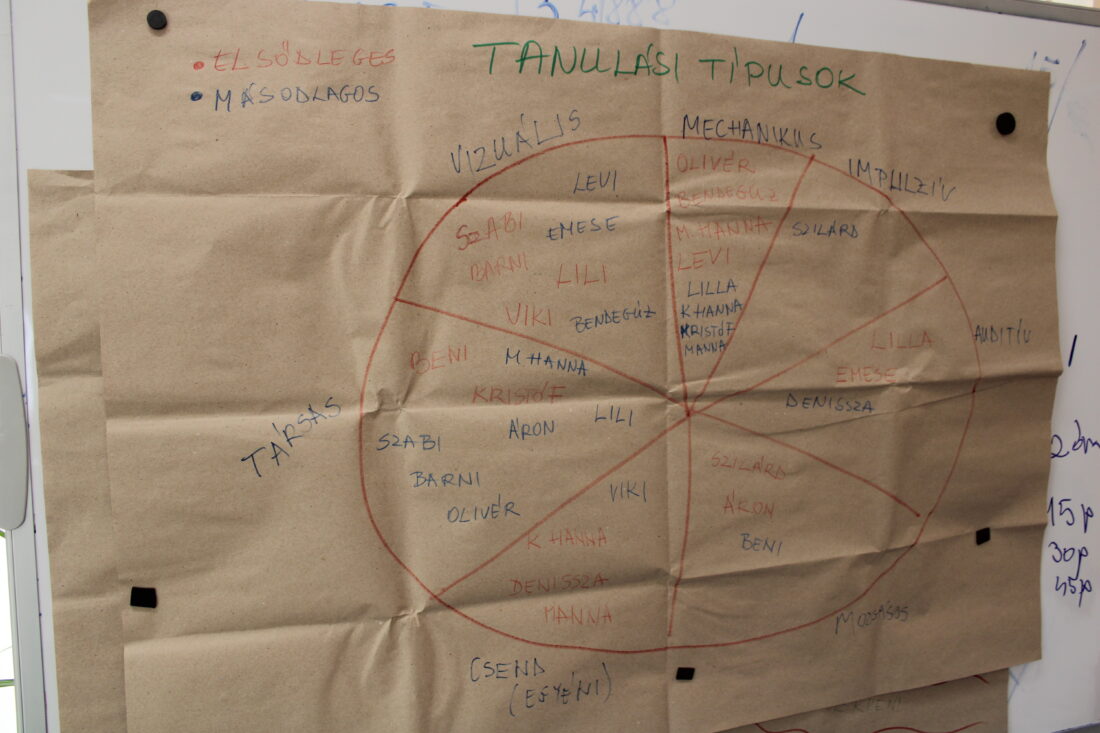 • ELSŐDLEGES
• MÁSODLAGOS
TANULÁSI TÍPUSOK
VIZUÁLIS
LEVI
SZABI
EMESE
BARNI
LILI
VIKI
BENDEGÚZ
MECHANIKUS
OLIVÉR
BENDEGÚZ
M. HANNA
LEVI
LILLA
K HANNA
KRISTÓF
MANNA
IMPULZÍV
SZILÁRD
AUDITÍV
LILLA
EMESE
DENISSZA
TÁRSAS
BENI
M. HANNA
KRISTÓF
ÁRON
LILI
SZABI
BARNI
OLIVÉR
VIKI
K HANNA
DENISSZA
MANNA
CSEND
(EGYÉNI)
SZILÁRD
ÁRON
BENI
MOZGÁSOS
15p
30p
45p